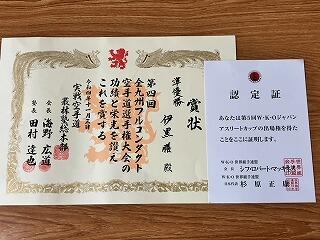 賞状
準優勝
伊里 殿
第四回
全九州フルコンタクト
空手道選手権大会の
功績と栄光を讃え
これを賞する
令和四年十一月三日
実戦空手道
叢林塾総本部
会長 海野 広道
塾長 田村 達也
認定証
あなたは第5回W・K・Oジャパン
アスリートカップの出場権を得た
ことをここに証明します。
WKO世界組手連盟
会長 シフ.ロバート・マッ
WKO世界組手連盟
杉原 正康